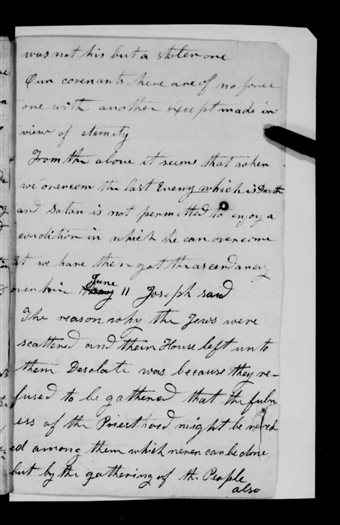 was not his but a stolen one
Our covenants here are of no force
one with another except made in
view of eternity
From the above it seems that when
we overcom the last Enemy which is Death
and Satan is not permitted to enjoy a
condition in which he can overcome
we have then got the ascendancy
over him June 11 Joseph said
The reason why the Jews were
scattered and their House left unto
them Desolate was because they re-
fused to be gathered that the fuln
ess of the Priesthood might be reveal
ed among them which never can be done
but by the gathering of the People
also